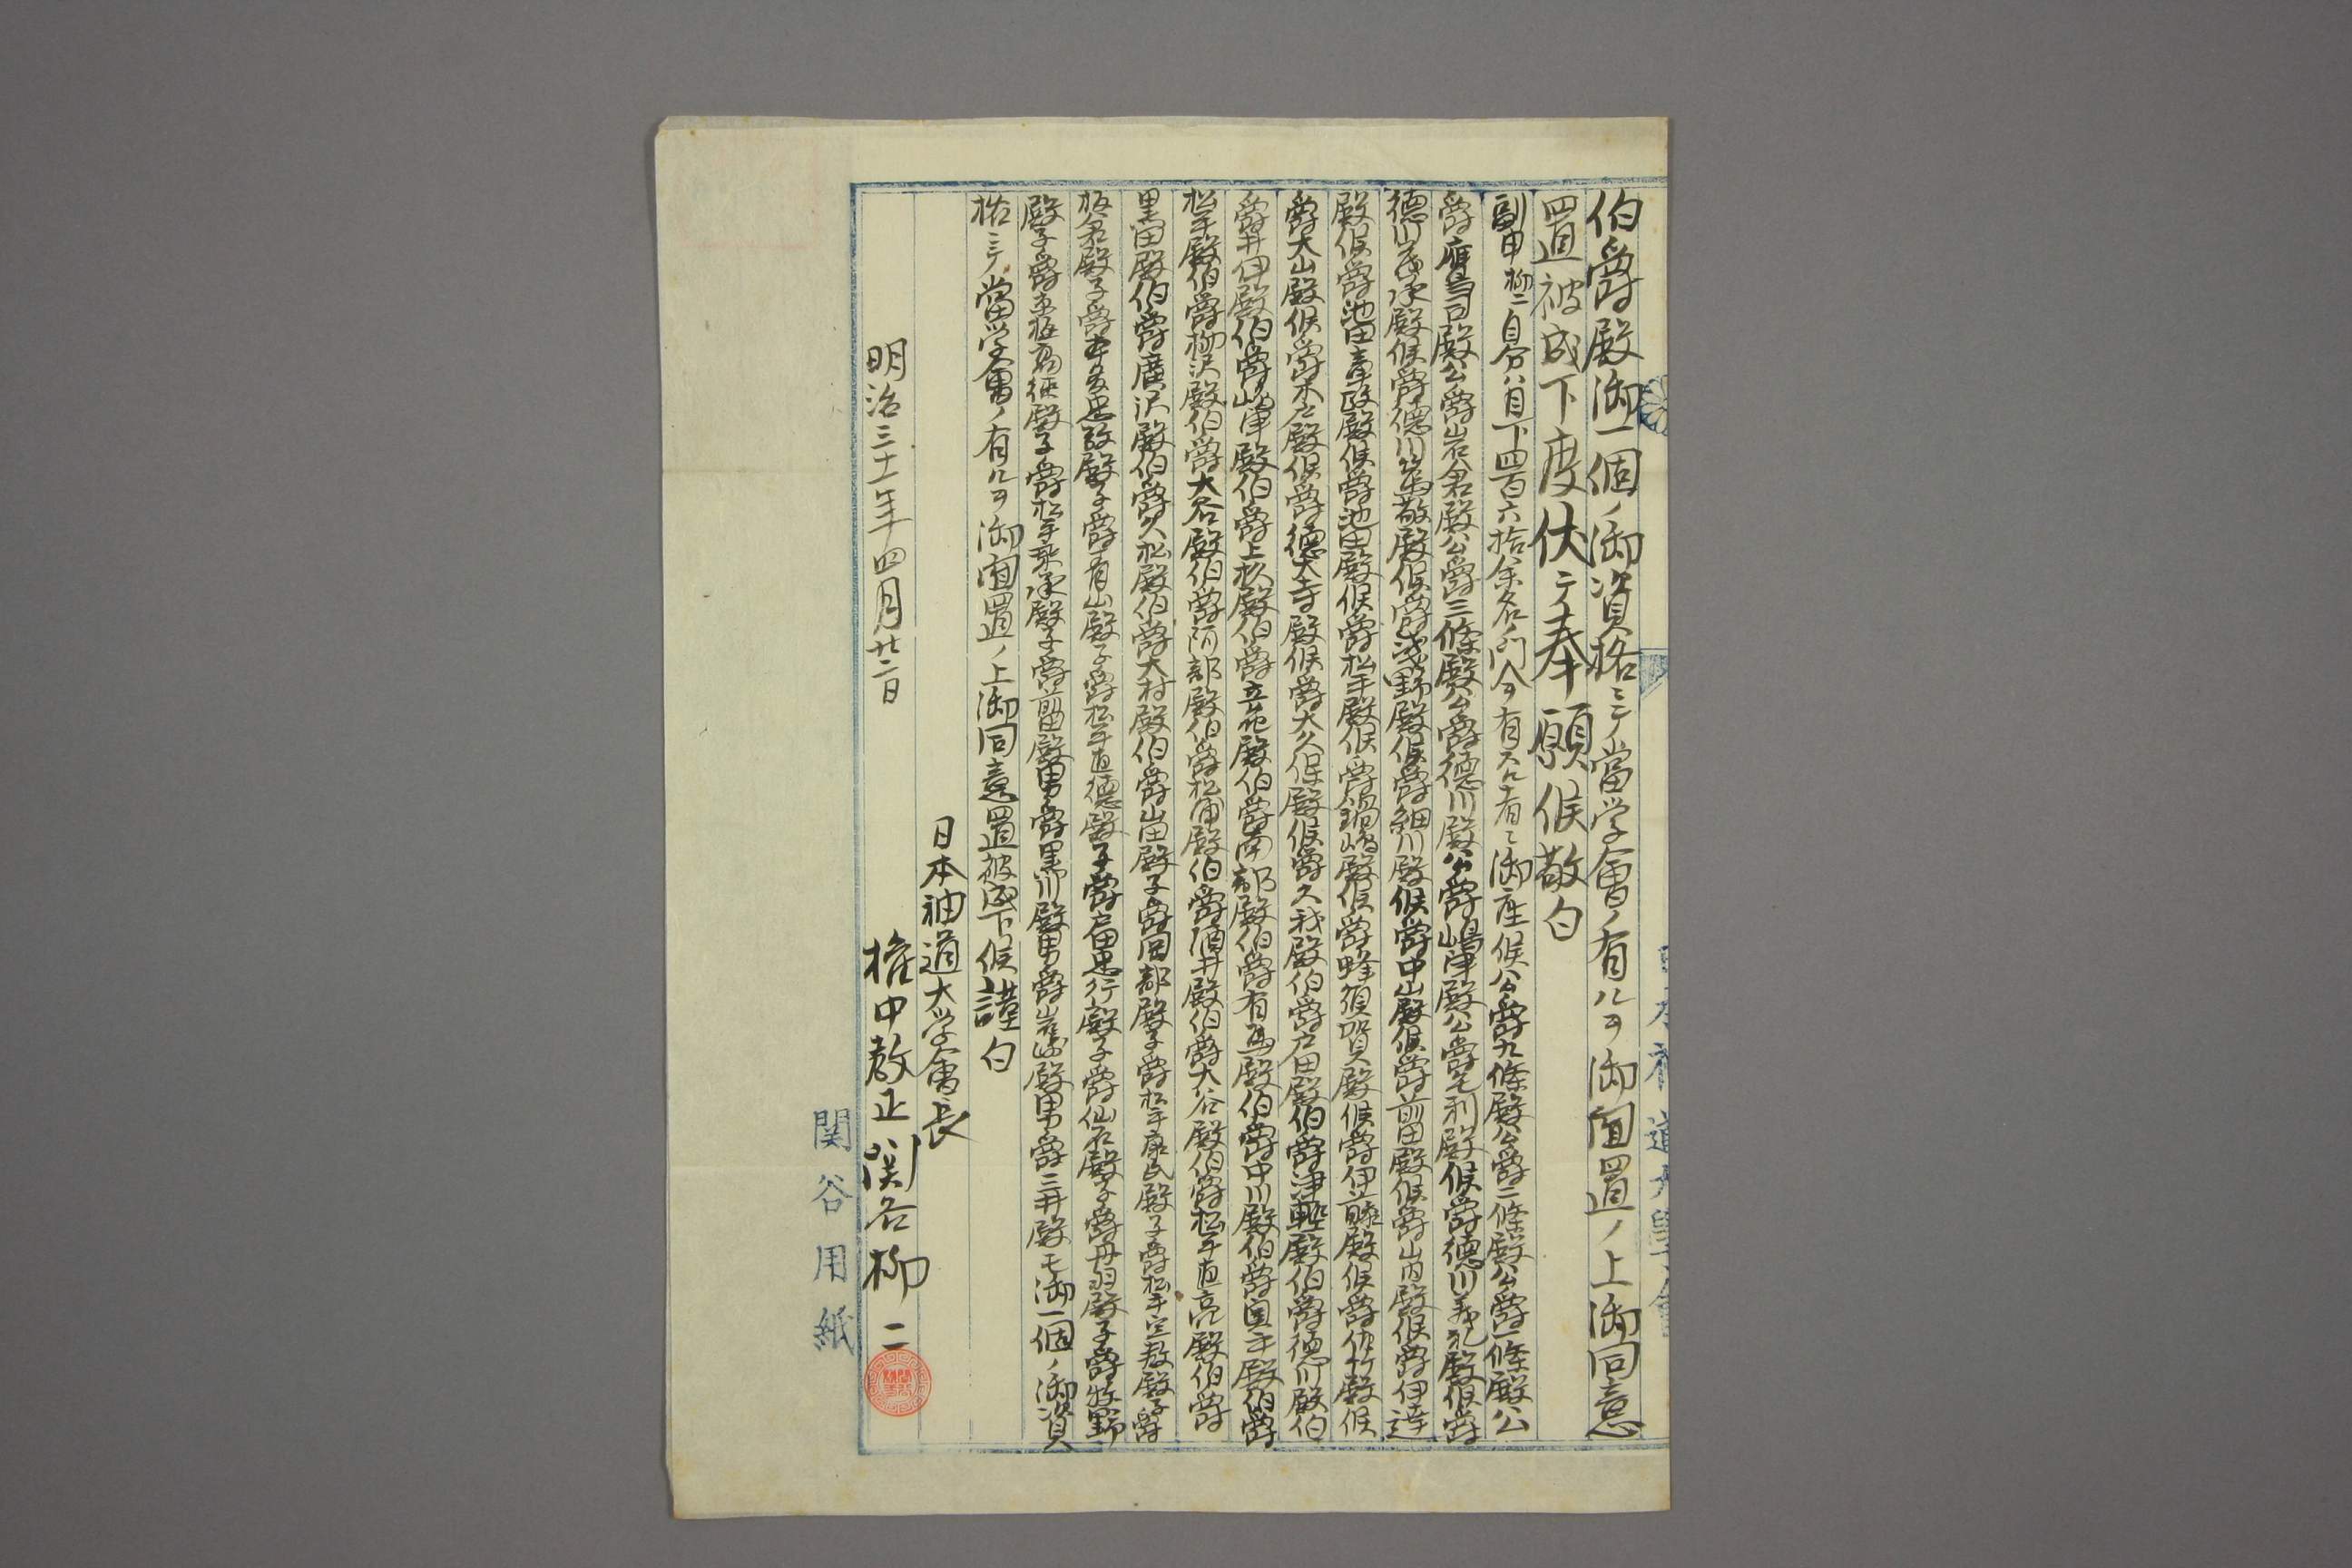 伯爵殿御一個ノ御資格ニテ當学會ノ有ルヿ御聞置ノ上御同意
置被成下度伏テ奉願候敬白
副申柳二自分ハ目下四百六拾余名ノ門人ヿ有スル者ニ御座候公爵九條殿公爵二條殿公爵一條殿公
爵鷹司殿公爵岩倉殿公爵三條殿公爵德川殿公爵嶋津殿公爵毛利殿候爵德川義礼殿候爵
德川茂承殿候爵德川篤敬殿候爵浅野殿候爵細川殿候爵中山殿候爵前田殿候爵山内殿候爵伊達
殿候爵池田章政殿候爵池田殿候爵松平殿候爵鍋嶋殿候爵蜂須賀殿候爵伊藤殿候爵佐竹殿候
爵大山殿候爵木戸殿候爵德大寺殿候爵大久保殿候爵久我殿伯爵戸田殿伯爵津軽殿伯爵德川殿伯
爵井伊殿伯爵嶋津殿伯爵上杉殿伯爵立花殿伯爵南部殿伯爵有馬殿伯爵中川殿伯爵奥平殿伯爵
松平殿伯爵柳沢殿伯爵大谷殿伯爵阿部殿伯爵松浦殿伯爵酒井殿伯爵大谷殿伯爵松平直亮殿伯爵
黒田殿伯爵廣沢殿伯爵久松殿伯爵大村殿伯爵山田殿子爵岡部殿子爵松平康民殿子爵松平定敬殿子爵
板倉殿子爵本多忠敬殿子爵青山殿子爵松平直德殿子爵戸田忠行殿子爵仙石殿子爵丹羽殿子爵牧野
殿子爵京極高德殿子爵松平乗承殿子爵前田殿男爵黒川殿男爵岩崎殿男爵三井殿モ御一個ノ御資
格ニテ當学會ノ有ルヿ御聞置ノ上御同意置被成下候謹白
日本神道大学會長
明治三十一年四月廿二日
権中教正関谷柳二
関谷用紙